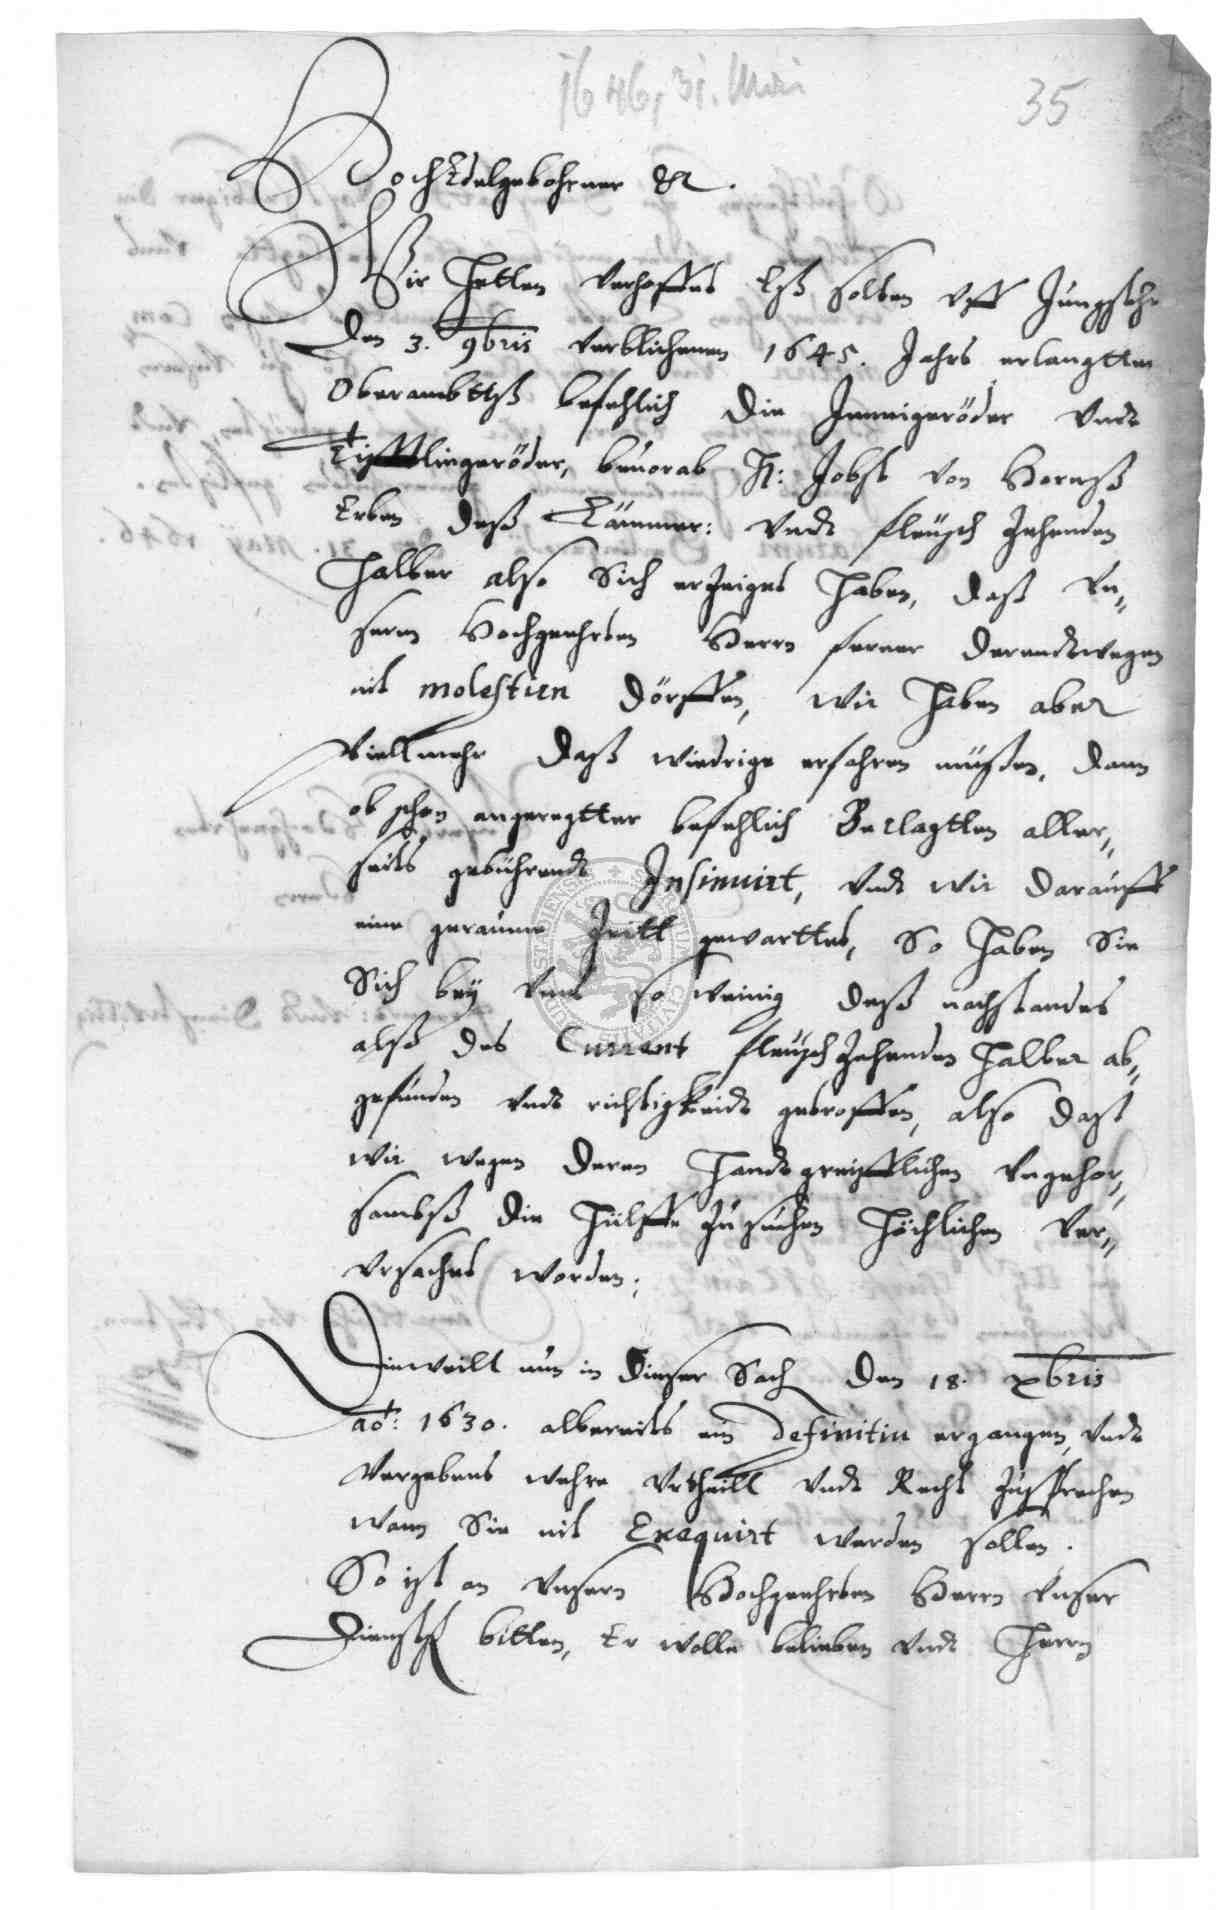 1646, 31. Mai
35
HochEdelgebohrner &c.
Wir hetten verhoffet Eß solten vff Jüngsthin
den 3. 9bris verblichenen 1645. Jahrs erlangtten
Oberambttß befehlich die Immigeröder vndt
Tistlingeröder, beuorab H: Jobst von Hornß
Erben deß Lämmer: vndt fleisch Zehenden
halber also Sich erzeiget haben, daß vn„
sern Hochgeehrten Herrn ferner derendtwegen
nit molestirn dörffen, wir haben aber
vielmehr daß wiedrige erfahren müßen, dann
ob schon angeregtter befehlich Beclagtten aller„
seits gebührendt Insinuirt, vndt wir darauff
eine geraume Zeitt gewarttet, So haben Sie
Sich bey vns so weinig deß nachstandes
alß des Current fleisch Zehenden halber ab„
gefunden vndt richtigkeidt getroffen, also daß
wir wegen deren handtgreifflichen vngehor„
sambß die hülffe zu suchen höchlichen ver„
vrsachet worden;
Dieweill nun in dieser Sach den 18. Xbris
ao: 1630. albereits ein Definitiu ergangen, vndt
vergebens wehre vrtheill vndt Recht zusprechen
wann Sie nit Exequirt werden sollen.
So ist an vnsern Hochgeehrten Herrn vnser
Dienstl. bitten, Er wolle belieben vndt Herrn